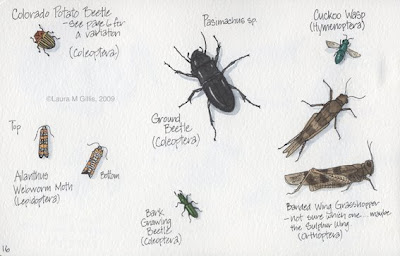 Colorado Potato Beetle
- see page 6 for
a variation
(Coleoptera)
©Laura M Gillis, 2009
Top
Ailanthus
Webworm Moth
(Lepidoptera)
Bottom
Pasimachus sp.
Ground
Beetle
(Coleoptera)
Bark
Gnawing
Beetle
(Coleoptera)
Cuckoo Wasp
(Hymenoptera)
Banded Wing Grasshopper
- not sure which one... maybe
the Sulphur Wing
(Orthoptera)
16